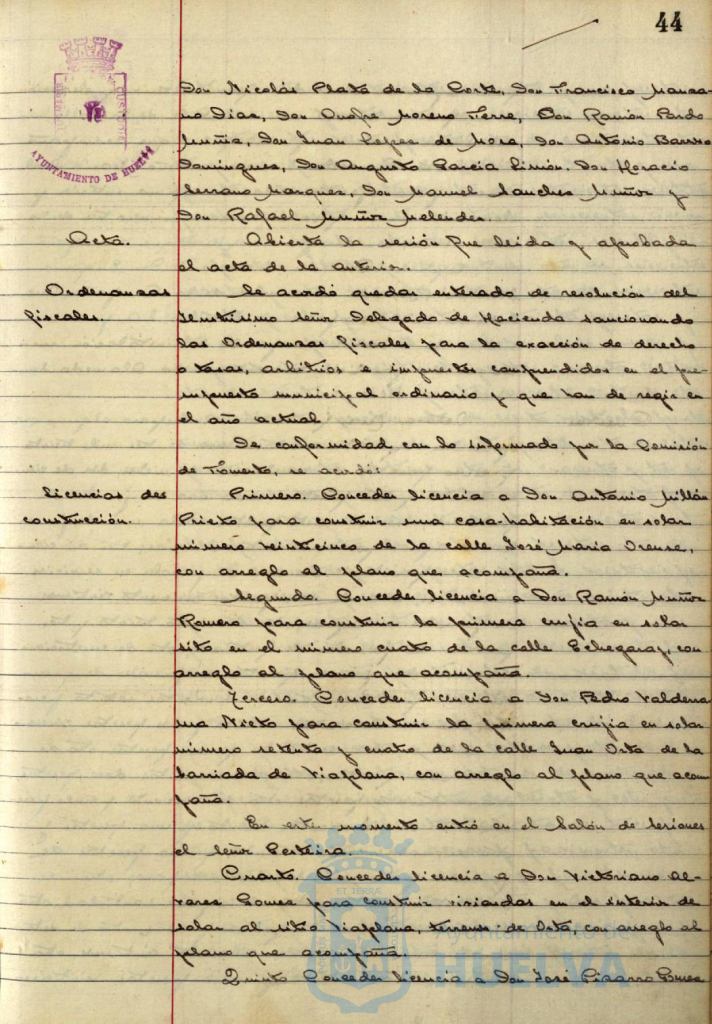 44
AYUNTAMIENTO DE HUELVA
Don Nicolás Plata de la Corte, Don Francisco Manza-
no Dias, Don Onofre Moreno Terre, Don Ramón Pardo
Muñiz, Don Juan López de Mora, Don Antonio Barroso
Domingues, Don Augusto García Limón, Don Horacio
Serrano Marques, Don Manuel Sanches Muñoz y
Don Rafael Muñoz Melendes.
Acta.
Abierta la sesión fue leida y aprobada
el acta de la anterior.
Ordenanzas
fiscales.
Se acordó quedar enterado de resolución del
Ilustrísimo señor Delegado de Hacienda sancionando
las Ordenanzas fiscales para la exacción de derecho
o tasas, arbitrios e impuestos comprendidos en el pre-
supuesto municipal ordinario y que han de regir en
el año actual
De conformidad con lo informado por la Comisión
de Fomento, se acordó:
Licencias de
construcción.
Primero. Conceder licencia a Don Antonio Millán
Prieto para construir una casa-habitación en solar
número veinticinco de la calle José Maria Orense,
con arreglo al plano que acompaña.
Segundo. Conceder licencia a Don Ramón Muñoz
Romero para construir la primera crujia en solar
sito en el número cuatro de la calle Echegaray, con
arreglo al plano que acompaña.
Tercero. Conceder licencia a Don Pedro Valderra
ma Nieto para construir la primera crujia en solar
número setenta y cuatro de la calle Juan Orta de la
barriada de Viaplana, con arreglo al plano que acom
paña.
En este momento entró en el Salón de Sesiones
el señor Terteira.
Cuarto. Conceder licencia a Don Victoriano Al-
vares Gomes para construir viviendas en el interior de
solar al sitio Viaplana, terrenos de Orta, con arreglo al
plano que acompaña.
Quinto Conceder licencia a Don José Pizarro
Ayuntamiento de
HUELVA